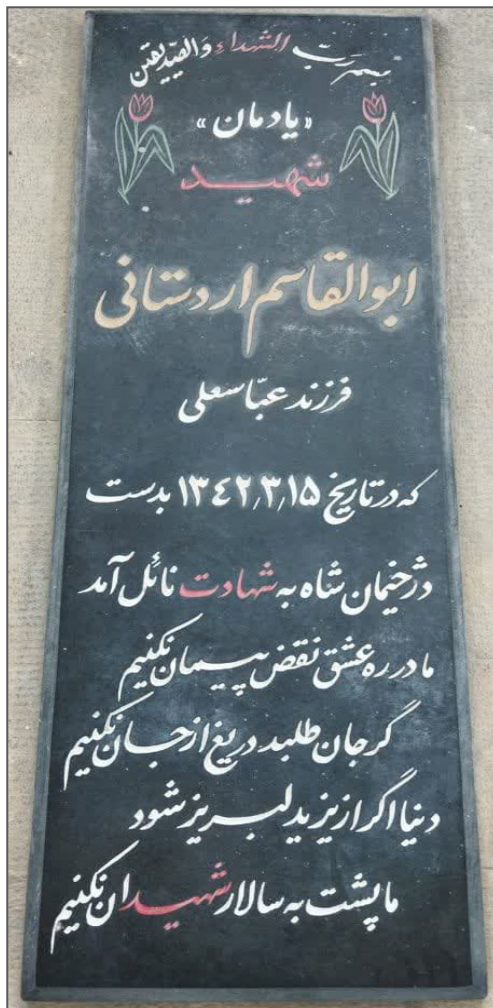 بسم ربّ الشهداءِ وَالصِّدّیقین
«یادمان»
شهید
ابوالقاسم اردستانی
فرزند عبّاسعلی
که در تاریخ ۱۳۴۲٫۳٫۱۵ بدست
دژخیمان شاه به شهادت نائل آمد
ما در ره عشق نقض پیمان نکنیم
گر جان طلبد دریغ از جان نکنیم
دنیا اگر از یزید لبریز شود
ما پشت به سالار شهیدان نکنیم